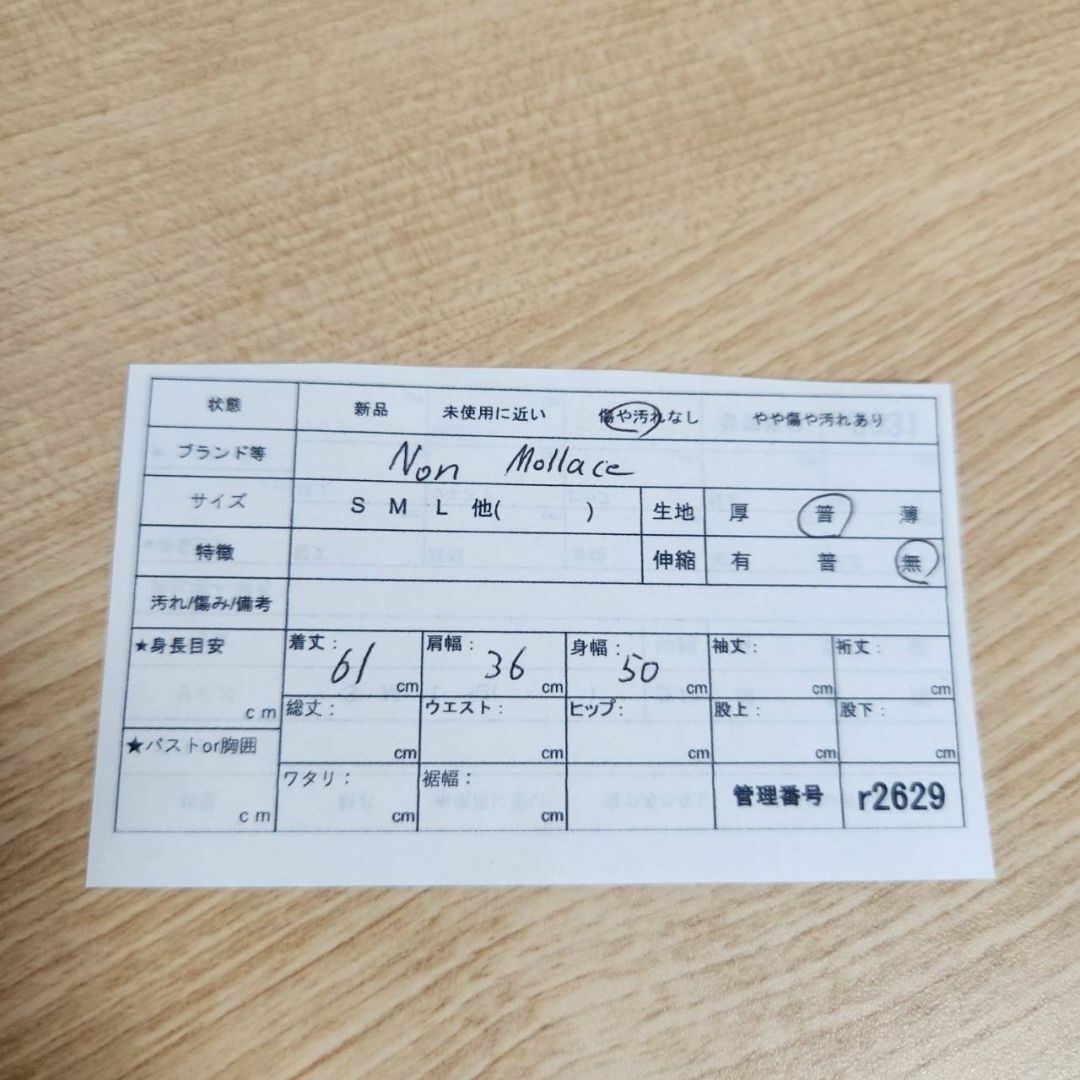 状態 新品 未使用に近い 傷や汚れなし やや傷や汚れあり
ブランド等 Non Mollace
サイズ S M L 他( ) 生地 厚 普 薄
特徴 伸縮 有 普 無
汚れ/傷み/備考
★身長目安 cm 着丈: 61 cm 肩幅: 36 cm 身幅: 50 cm 袖丈: cm 裄丈: cm
総丈: cm ウエスト: cm ヒップ: cm 股上: cm 股下: cm
★バストor胸囲 cm ワタリ: cm 裾幅: cm 管理番号 r2629